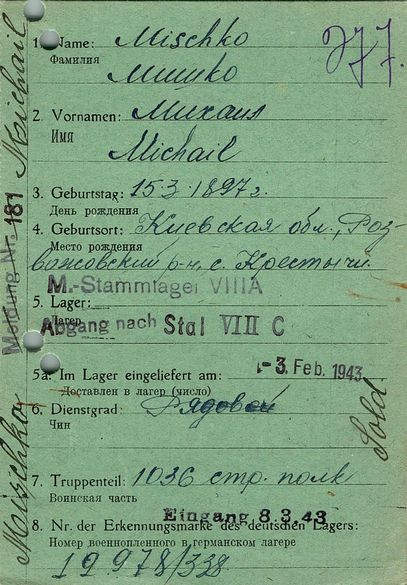 Mischko
1. Name:
Фамилия
Мишко
2. Vornamen: Михаил
Имя
Michail
3. Geburtstag: 15.3.1897 г.
День рождения
4. Geburtsort: Киевская обл., Роз-
Место рождения
важовский р-н, с. Крестычи.
M.-Stammlager VIIIA
5. Lager:
Лагерь
Abgang nach Stal VIII C
5a. Im Lager eingeliefert am: - 3. Feb. 1943
Доставлен в лагерь (число)
6. Dienstgrad: Рядовой
Чин
7. Truppenteil: 1036 стр. полк
Воинская часть
Eingang 8.3.43
8. Nr. der Erkennungsmarke des deutschen Lagers:
Номер военнопленного в германском лагере
19978/338
Mischko Michail
Meldung Nr. 181
Sold